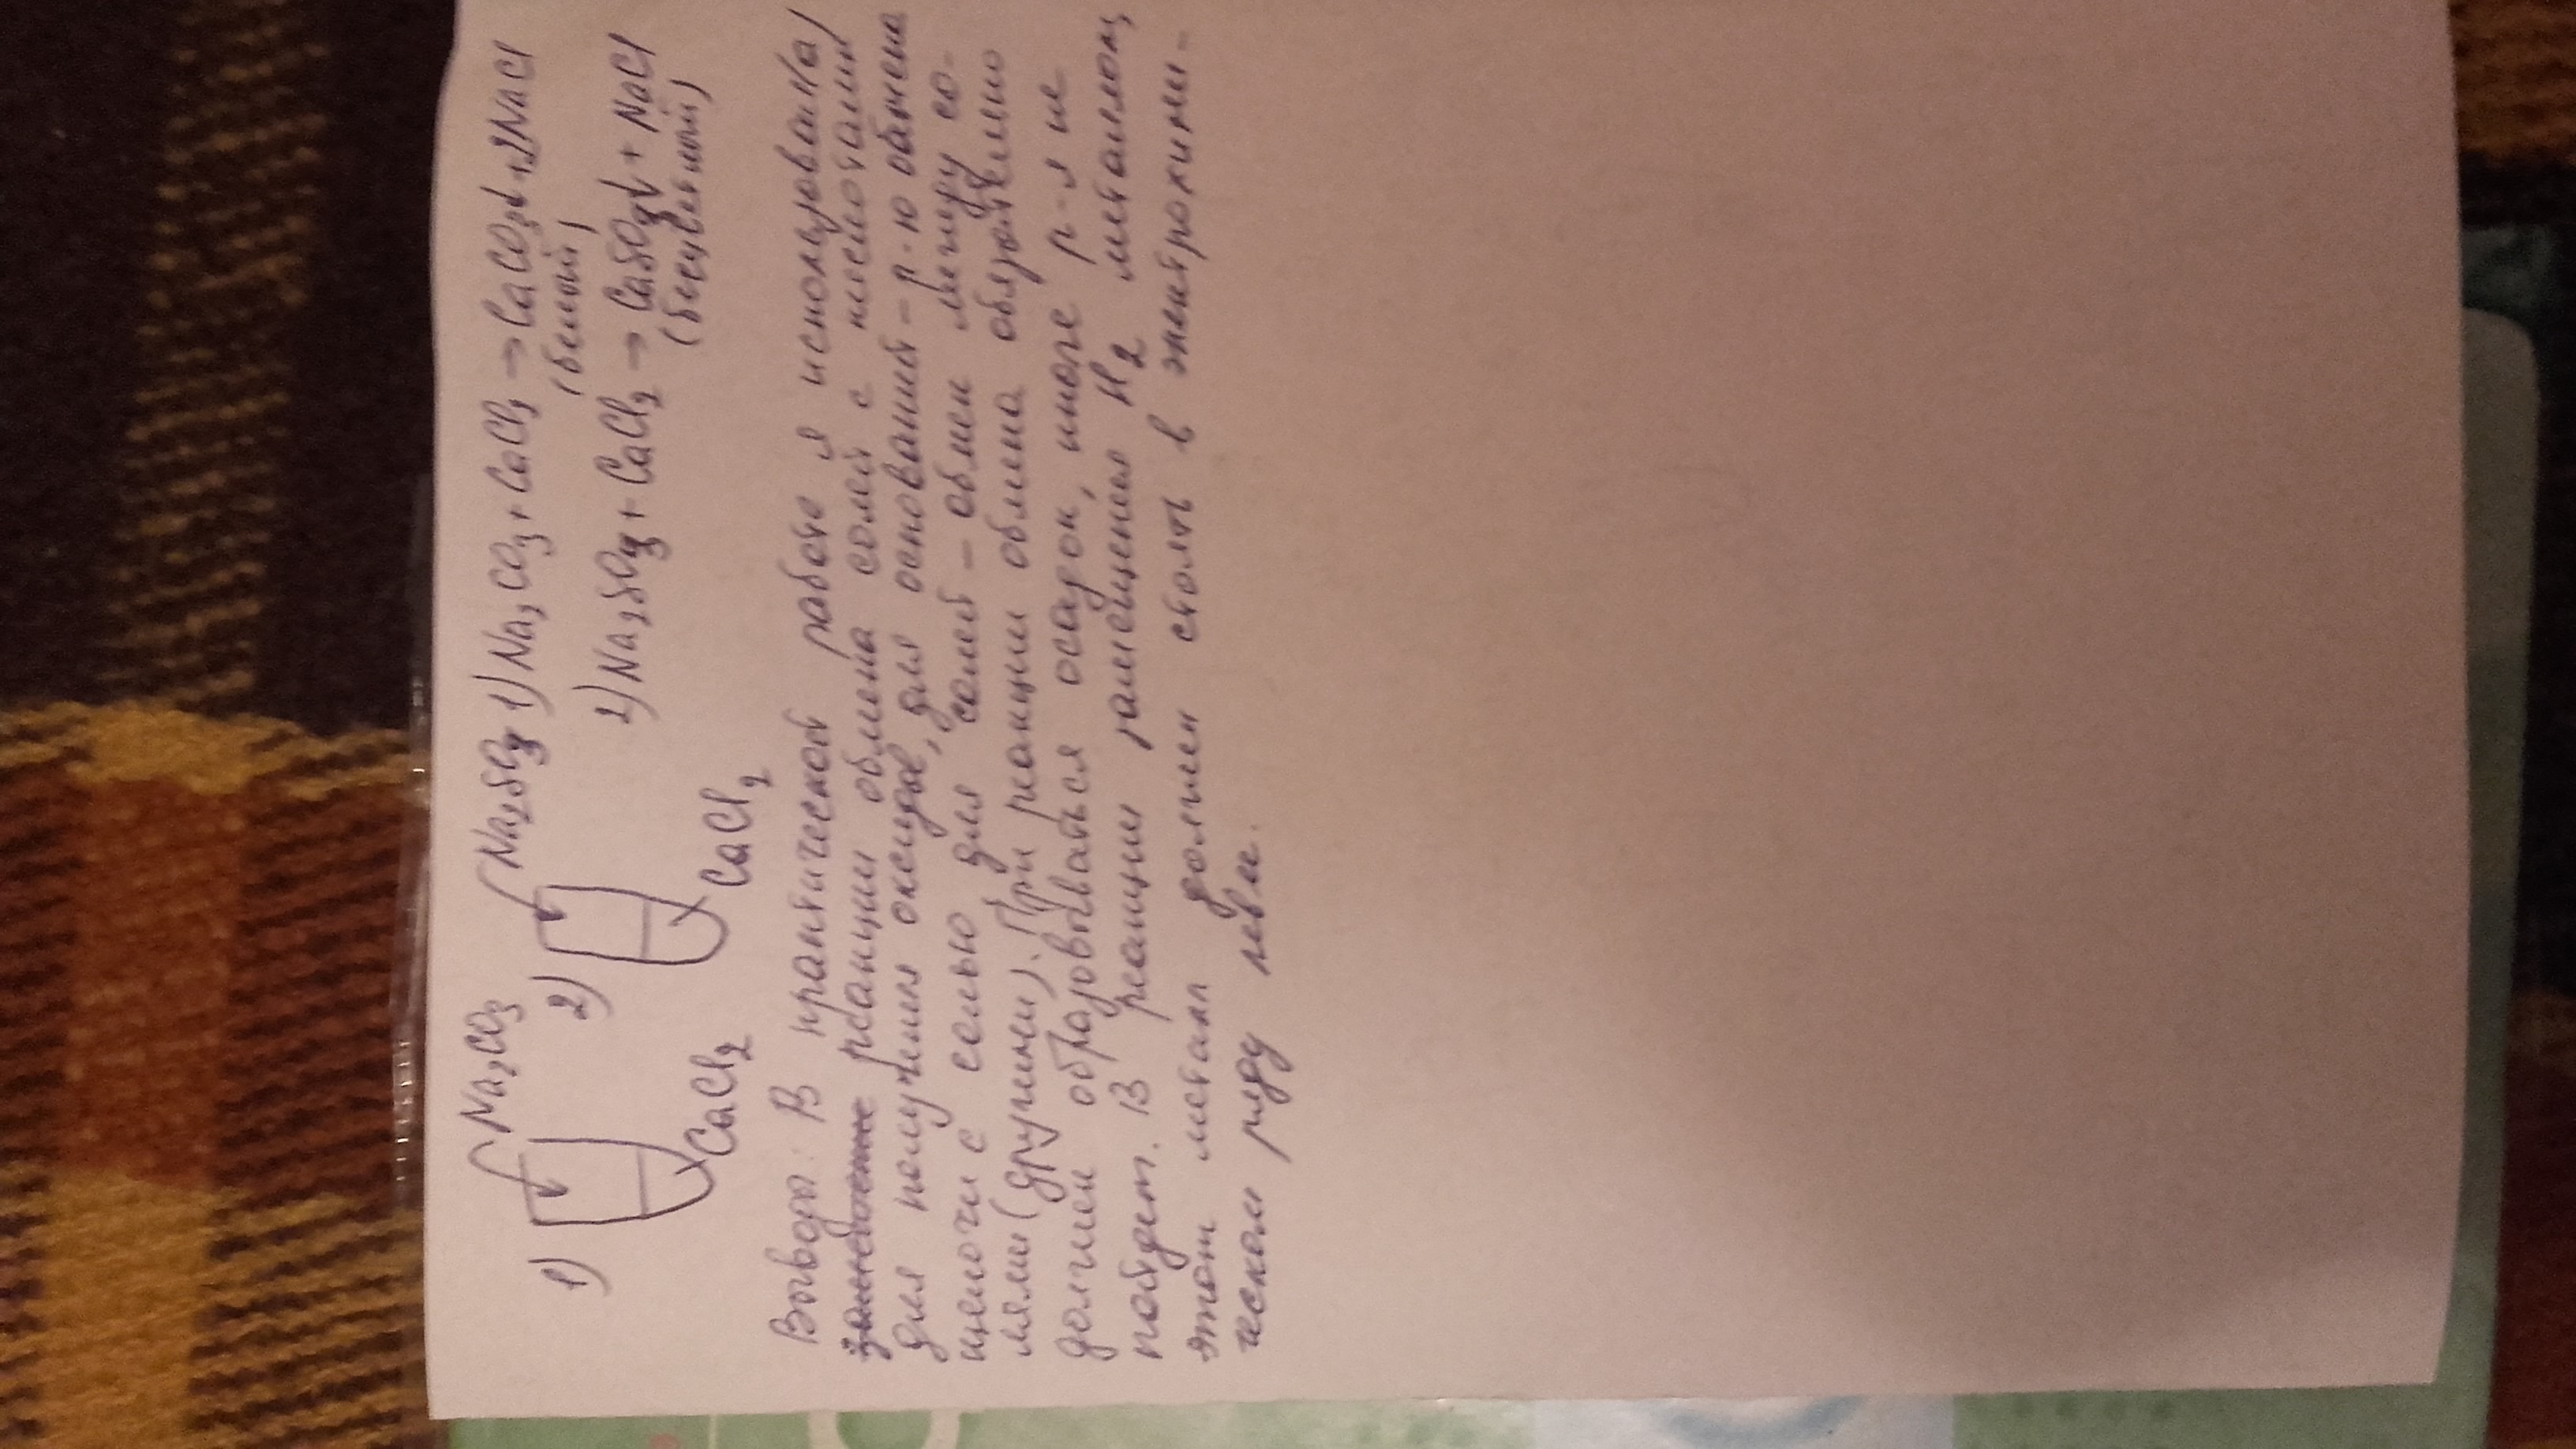 1) Na₂CO₃ 2) Na₂SO₃ 1) Na₂CO₃ + CaCl₂ → CaCO₃↓ + 2NaCl
(белый)
CaCl₂ CaCl₂ 2) Na₂SO₃ + CaCl₂ → CaSO₃↓ + NaCl
(бесцветный)
Вывод: В практической работе я использовала
реакции обмена солей с кислотами
для получения оксидов, для оснований - р-ю обмена
щелочи с солью для солей - обмен между со-
лями (другими). При реакции обмена обязательно
должен образовываться осадок, иначе р-я не
пойдет. В реакции замещения H₂ металлом,
этот металл должен стоять в электрохими-
ческом ряду левее.